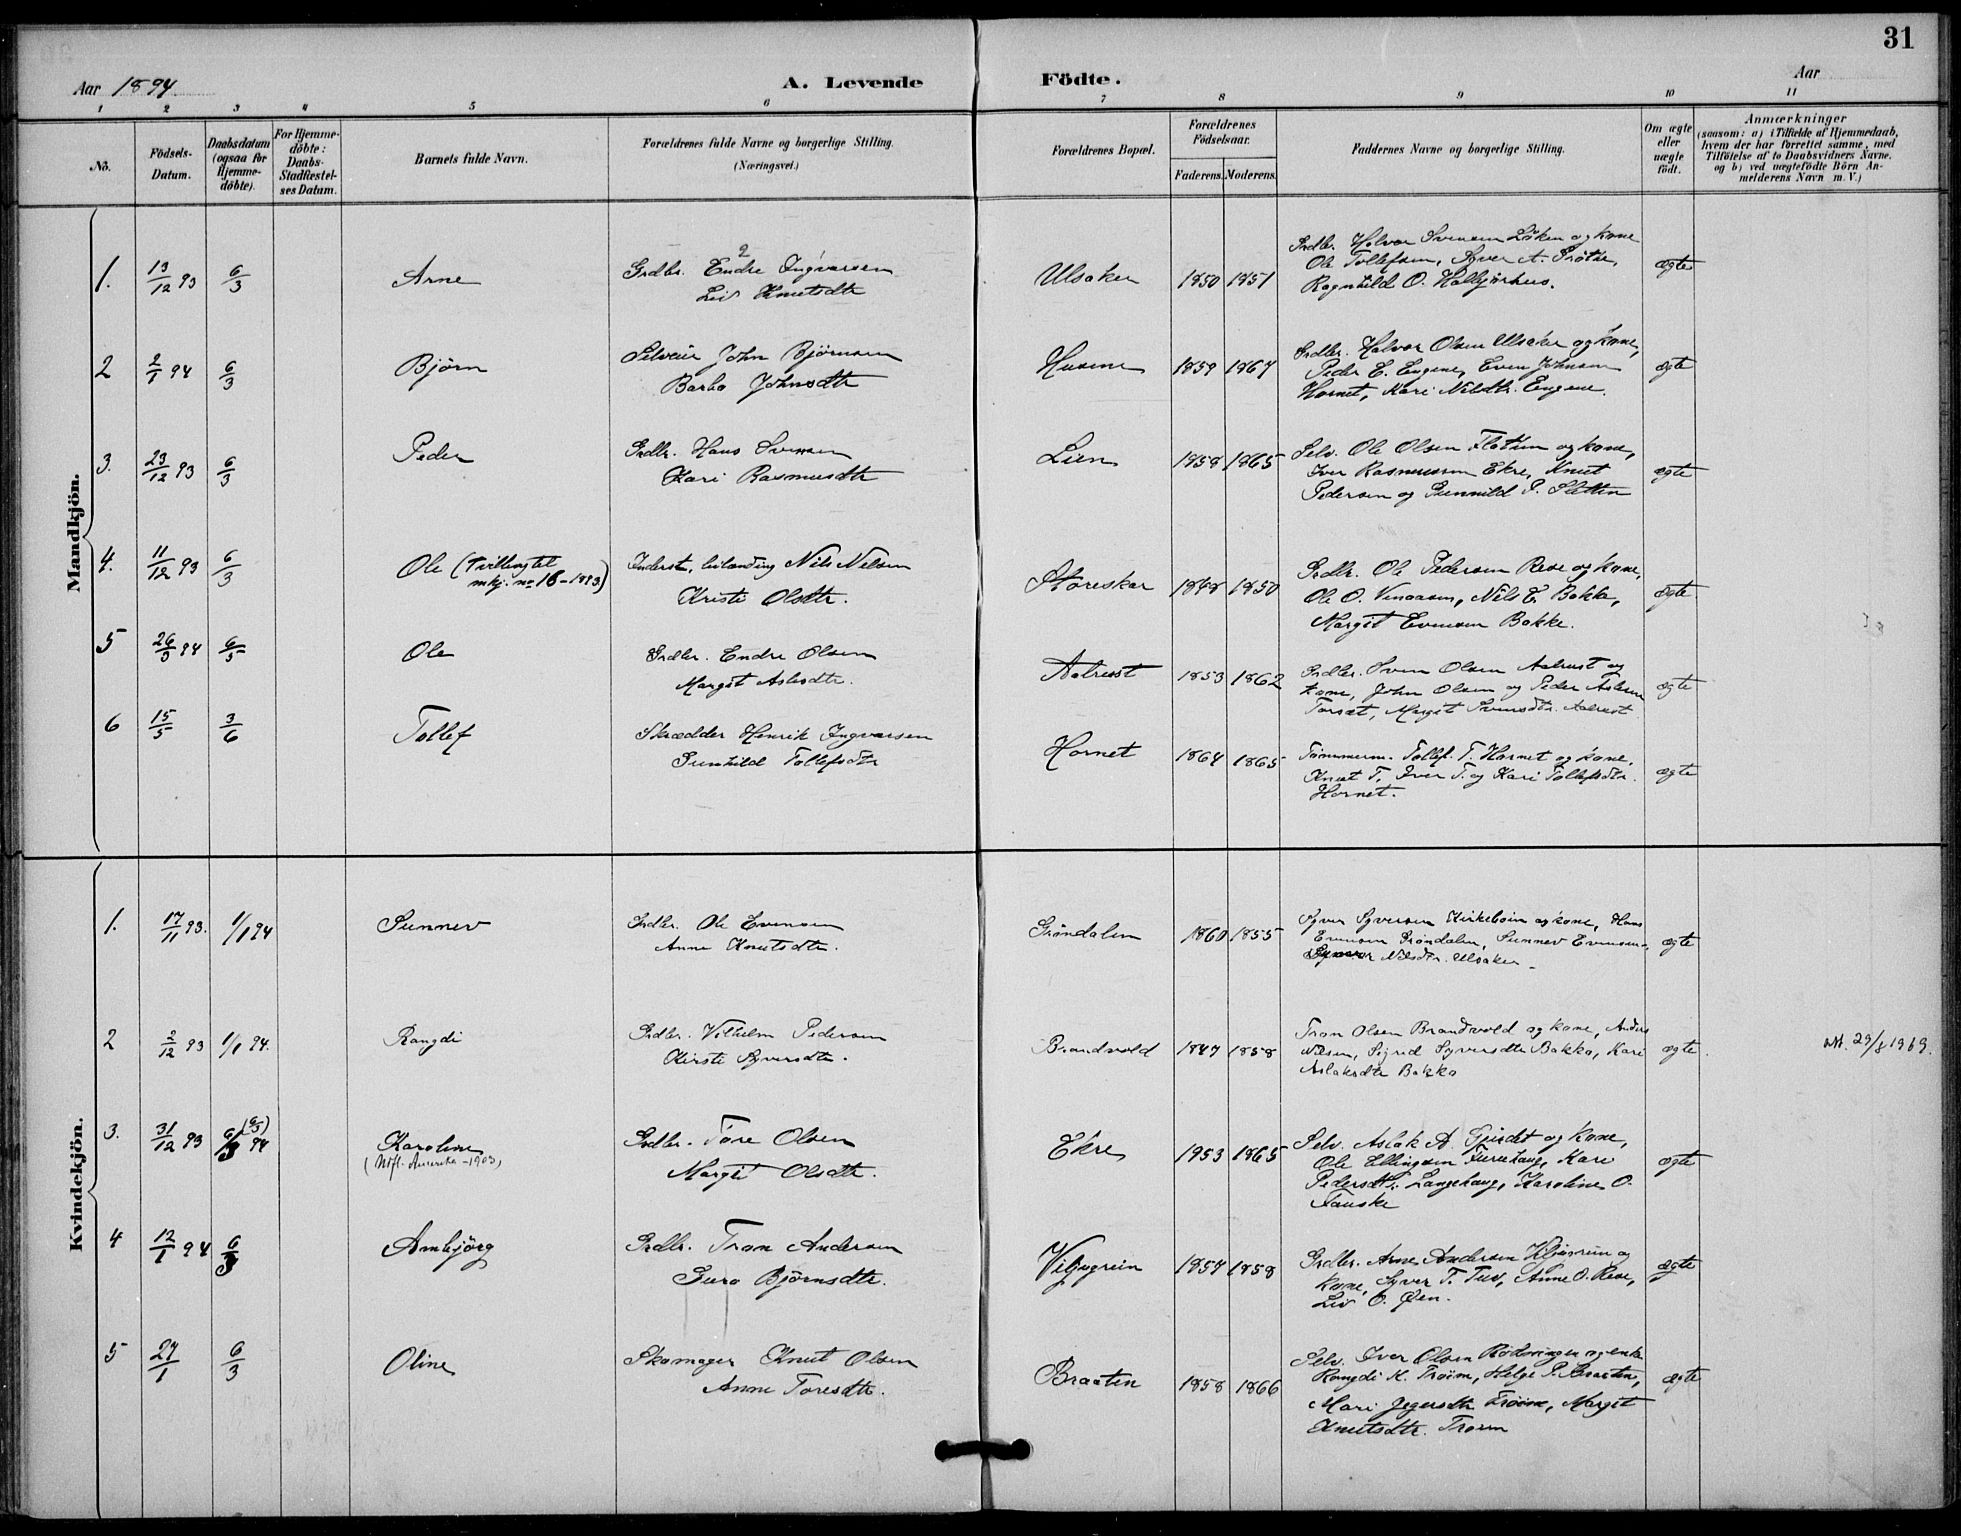 31
Aar 1894
A. Levende
Födte.
Aar
1 2 3 4 5 6 7 8 9 10 11
Nò.
Födsels-
Datum.
Daabsdatum
(ogsaa for
Hjemme-
döbte).
For Hjemme-
döbte:
Daabs-
Stadfæstel-
ses Datum.
Barnets fulde Navn.
Forældrenes fulde Navne og borgerlige Stilling.
(Næringsvei.)
Forældrenes Bopæl.
Forældrenes
Födselsaar.
Faderens. Moderens.
Faddernes Navne og borgerlige Stilling.
Om ægte
eller
uægte
födt.
Anmærkninger
(saasom: a) i Tilfælde af Hjemmedaab,
hvem der har forrettet samme, med
Tilföielse af to Daabsvidners Navne,
og b) ved uægtefödte Börn An-
melderens Navn m. V.)
Mandkjön.
1. 13/12 93 6/3 Arne
Grdbr. Endre Ingvarsen
Liv Knutsdtr
Ulsaker 1850 1851
Grdbr. Halvor Svensen Löken og kone
Ole Tollefsen, Syver A.
Ragnhild O.
ægte
2 2/1 94 6/3 Björn
Selveier John Björnsen
Barbo Johnsdtr
Husene 1859 1867
Grdbr. Halvor Olsen Ulsaker og kone,
Peder E. Eugene, Even Johnsen
Hornet, Kari Nilsdtr. Eugene.
ægte
3. 23/12 93 6/3 Peder
Grdbr. Hans Svensen
Kari Rasmusdtr
Lien 1858 1865
Selv. Ole Olsen Flaten og kone,
Iver Rasmussen Ekre, Knut
Pedersen og Gunnild P. Sletten
ægte
4. 11/12 93 6/3 Ole (Tvilling til
mkj. no 16 - 1893)
Inderst, Nils Nilsen
Kristi Olsdtr.
Storeskar 1848 1850
Grdbr. Ole Pedersen Rese og kone,
Ole O. , Nils E. Bakke,
Margit Evensen Bakke.
ægte
5 26/3 94 6/5 Ole
Grdbr. Endre Olsen
Margit Aslesdtr.
Aalrust 1853 1862
Grdbr. Sven Olsen Aalrust og
kone, John Olsen og Peder Aslesen
Torset, Margit Svensdtr. Aalrust
ægte
6 15/5 3/6 Tollef
Skrædder Henrik Ingvarsen
Gunhild Tollefsdtr
Hornet 1864 1865
Tömmerm. Tollef T. Hornet og kone,
Knut T., Iver T. og Kari Tollefsdtr.
Hornet.
ægte
Kvindekjön.
1. 17/11 93. 1/1 94 Sunnev
Grdbr. Ole Evensen
Anne Knutsdtr.
Gröndalen 1860 1855
Syver Syversen Kirkeboin og kone, Hans
Evensen Gröndalen, Sunnev Evensen,
Nilsdtr. Ulsaker
ægte
2 2/12 93 1/1 94. Rangdi
Grdbr. Vilhelm Pedersen
Kirsti Syversdtr.
Brandvold 1847 1858
Tron Olsen Brandvold og kone, Anders
Nilsen, Sigrid Syversdtr Bakko, Kari
Aslaksdtr Bakko
ægte
29/8 1969.
3. 31/12 93 6/3 94 (6/3) Karoline
(Utfl. Amerika - 1903)
Grdbr. Tore Olsen
Margit Olsdtr.
Ekre 1953 1865
Selv. Aslak A. Gjirdet og kone,
Ole Ellingsen Furuhaug, Kari
Pedersdtr. Langehaug, Karoline O.
Fauske
ægte
4 12/1 94 6/3 Ambjörg
Grdbr. Tron Andersen
Guro Björnsdtr.
Viljugrein 1854 1858
Grdbr. Arne Andersen og
kone, Syver T. Tuv, Anne O. Rese,
Liv O. Øen.
ægte
5 27/1 6/3 Oline
Skomager Knut Olsen
Anne Toresdtr.
Braaten 1858 1866
Selv. Iver Olsen og enke
Rangdi K. Tröim, Helge P. Braaten,
Mari Tröim, Margit
Knutsdtr. Tröim
ægte